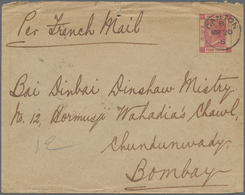 Per French Mail
Bai Dinbai Dinshaw Mistry
No. 12 Hormusji Wahadia's Chawl,
Chundunwady,
Bombay